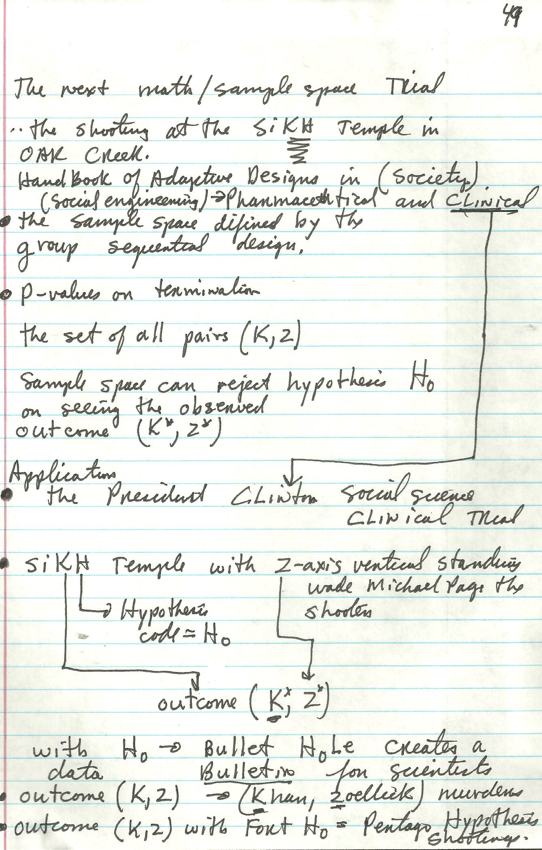 49
The next math/sample space Trial
.. the shooting at the SiKH Temple in
OAK Creek.
HandBook of Adaptive Designs in (Society)
(Social engineering) → Pharmaceutical and CLinical
• the sample space difined by the
group sequential design.
• P-values on termination
the set of all pairs (K,Z)
Sample space can reject hypothesis Ho
on seeing the observed
outcome (K*, Z*)
Application
• the President CLinton Social science
CLinical Trial
• SiKH Temple with Z-axis vertical standing
wade Michael Page the
shooter
Hypothesis
code = Ho
outcome (K*, Z*)
with Ho → Bullet HoLe creates a
data Bulletin for scientists
• outcome (K,Z) → (Khan, Zoellick) murders
• outcome (K,Z) with Font Ho = Pentago Hypothesis
Shootings.